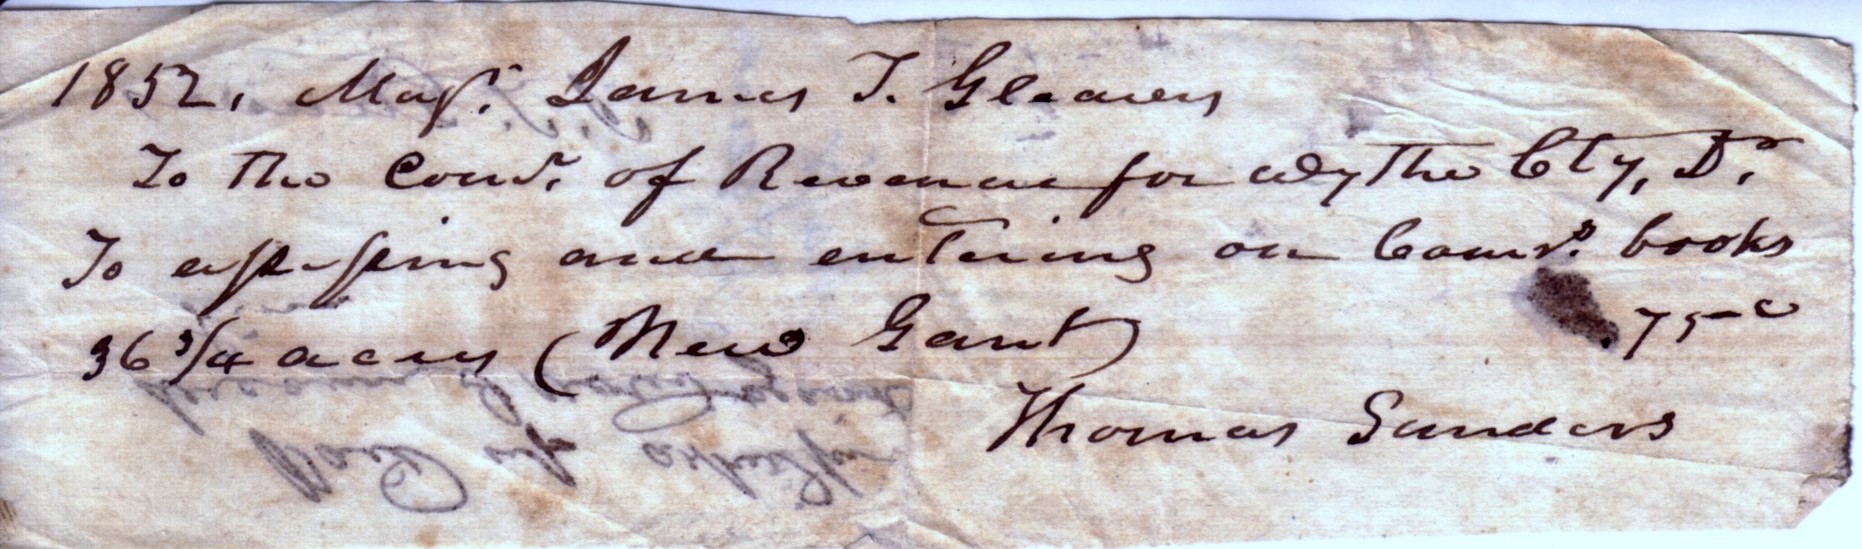 1852, Majr. James T. Gleaves
To the Comr. of Revenue for Wythe Cty, Dr.
To assessing and entering on Comrs. books
36 3/4 acres (New Gant) .75c
Thomas Sanders